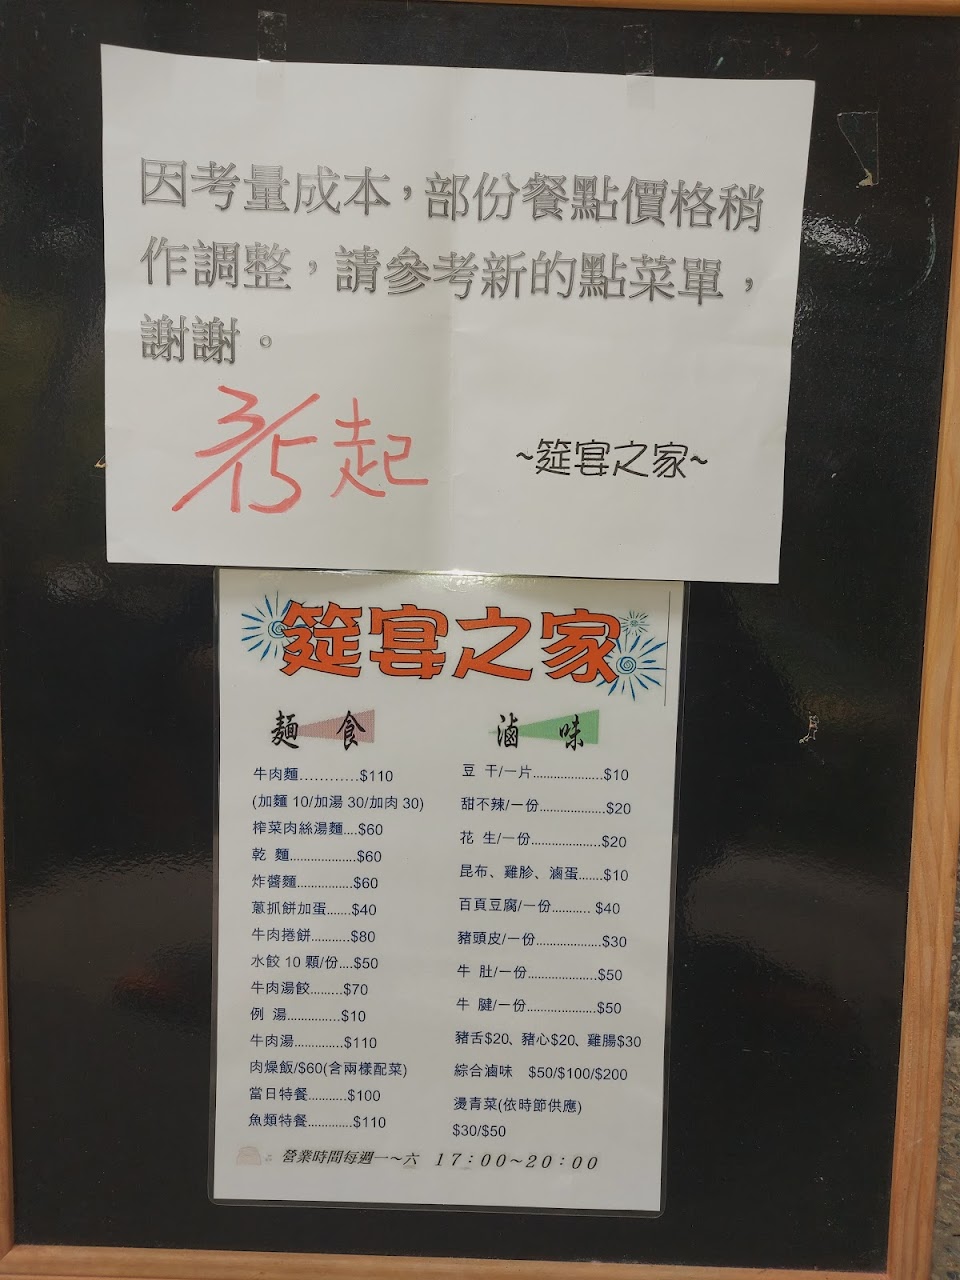 因考量成本，部份餐點價格稍
作調整，請參考新的點菜單，
謝謝。
3/15起
~筵宴之家~
筵宴之家
麵食
牛肉麵............$110
(加麵10/加湯30/加肉30)
榨菜肉絲湯麵....$60
乾 麵...................$60
炸醬麵................$60
蔥抓餅加蛋.......$40
牛肉捲餅...........$80
水餃10顆/份....$50
牛肉湯餃.........$70
例 湯...............$10
牛肉湯..............$110
肉燥飯/$60(含兩樣配菜)
當日特餐...........$100
魚類特餐.............$110
滷味
豆 干/一片....................$10
甜不辣/一份...................$20
花 生/一份....................$20
昆布、雞胗、滷蛋.......$10
百頁豆腐/一份........... $40
豬頭皮/一份...................$30
牛 肚/一份....................$50
牛 腱/一份....................$50
豬舌$20、豬心$20、雞腸$30
綜合滷味 $50/$100/$200
燙青菜(依時節供應)
$30/$50
營業時間每週一～六 17:00~20:00